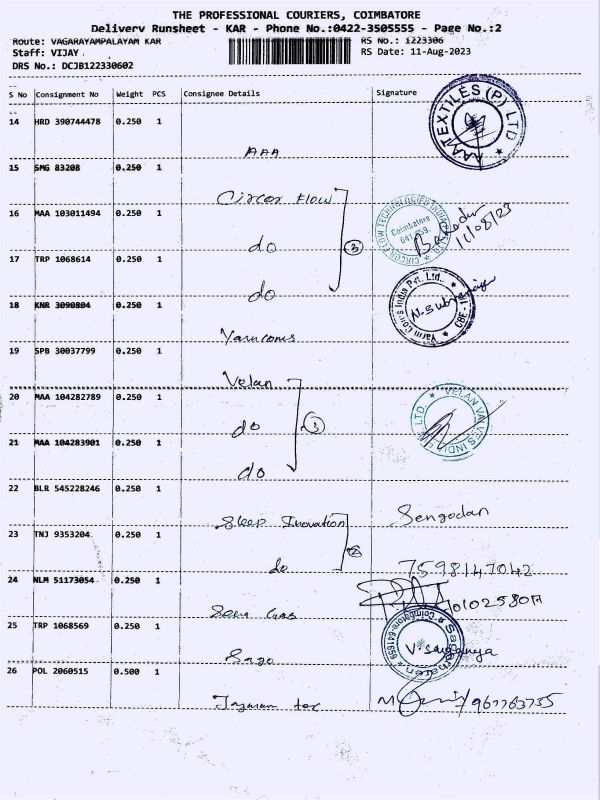 THE PROFESSIONAL COURIERS, COIMBATORE
Delivery Runsheet - KAR - Phone No.:0422-3505555 - Page No.:2
Route: VAGARAYAMPALAYAM KAR
RS No.: 1223306
Staff: VIJAY .
RS Date: 11-Aug-2023
DRS No.: DCJB122330602
S No Consignment No Weight PCS Consignee Details Signature
14 HRD 390744478 0.250 1
AAA
AAA TEXTILES (P) LTD
15 SMG 83208 0.250 1
Circor Flow
16 MAA 103011494 0.250 1
do
3
CIRCOR FLOW TECHNOLOGIES INDIA
Coimbatore
11/08/23
17 TRP 1068614 0.250 1
do
18 KNR 3090804 0.250 1
Yarncoirs
Yarn Coirs India Pvt. Ltd., CBE - 1
19 SPB 30037799 0.250 1
Velan
20 MAA 104282789 0.250 1
do
3
VELAN VALVES INDIA LTD.
21 MAA 104283901 0.250 1
do
22 BLR 545228246 0.250 1
Sleep Inovation
Sengodan
23 TNJ 9353204 0.250 1
do
2
7598147042
24 NLM 51173054 0.250 1
25 TRP 1068569 0.250 1
Sago
26 POL 2060515 0.500 1